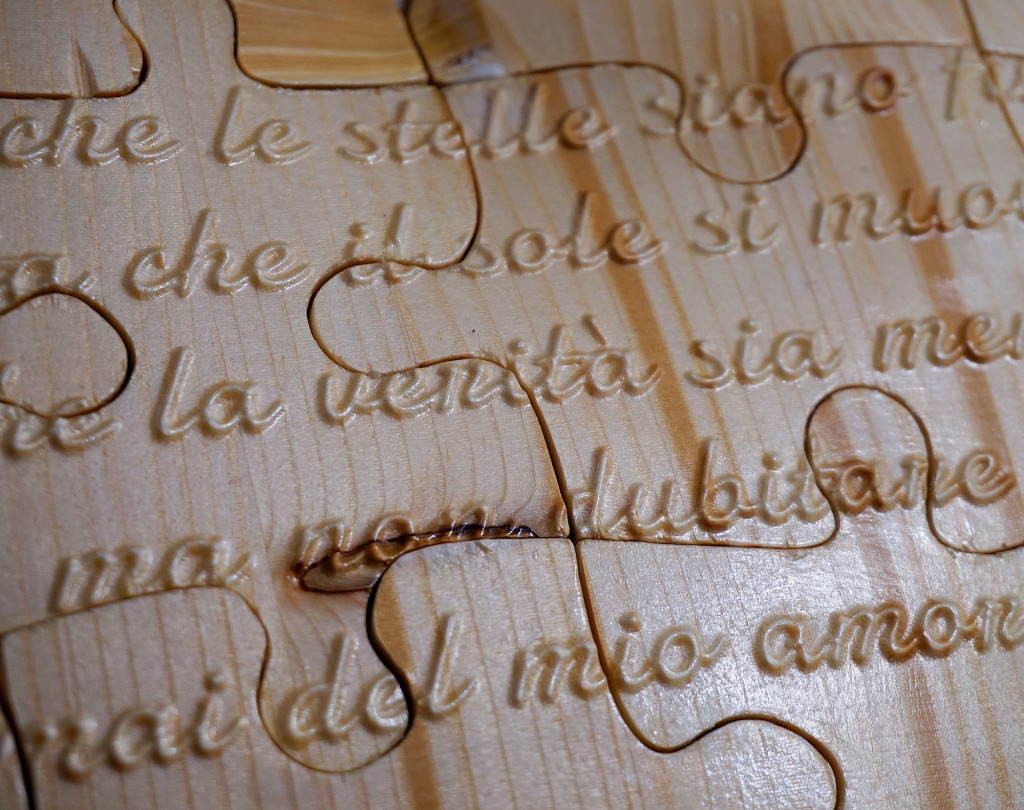 che le stelle siano fu
a che il sole si muov
re la verità sia men
ma non dubitare
mai del mio amore